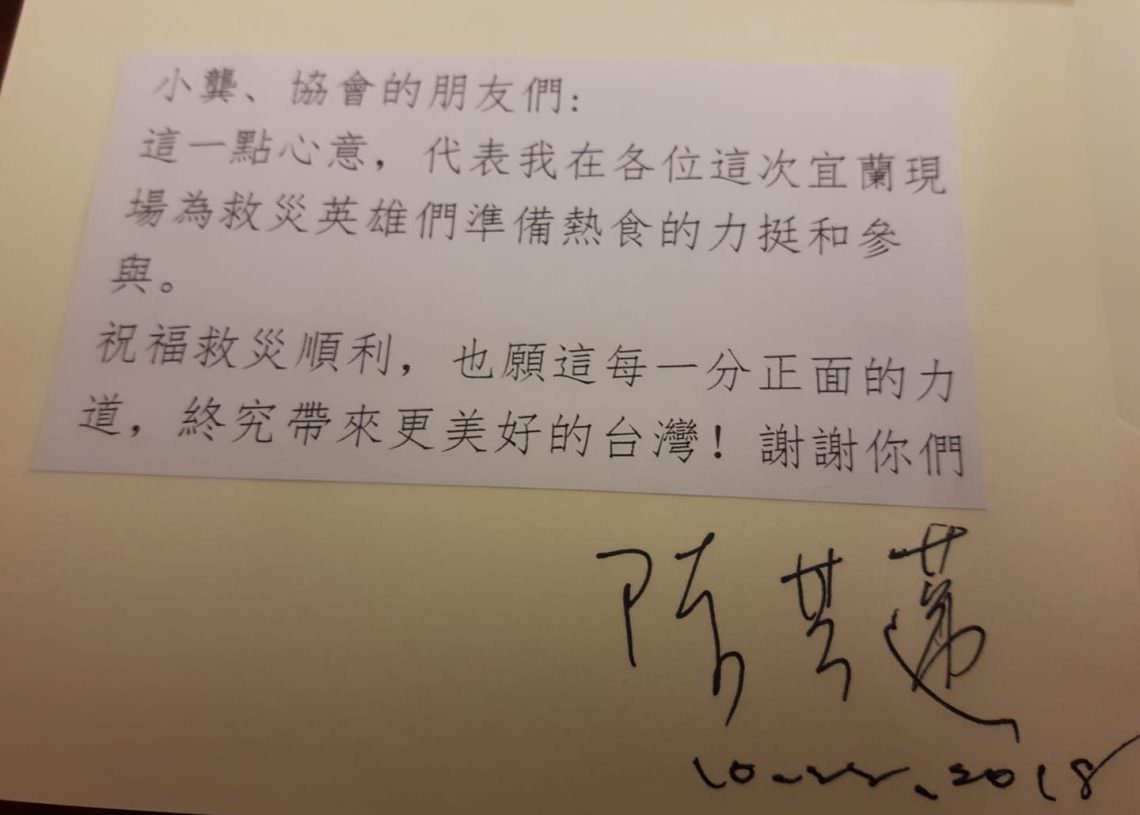 小龔、協會的朋友們:
這一點心意，代表我在各位這次宜蘭現
場為救災英雄們準備熱食的力挺和參
與。
祝福救災順利，也願這每一分正面的力
道，終究帶來更美好的台灣！謝謝你們
陳其邁
10-22.2018